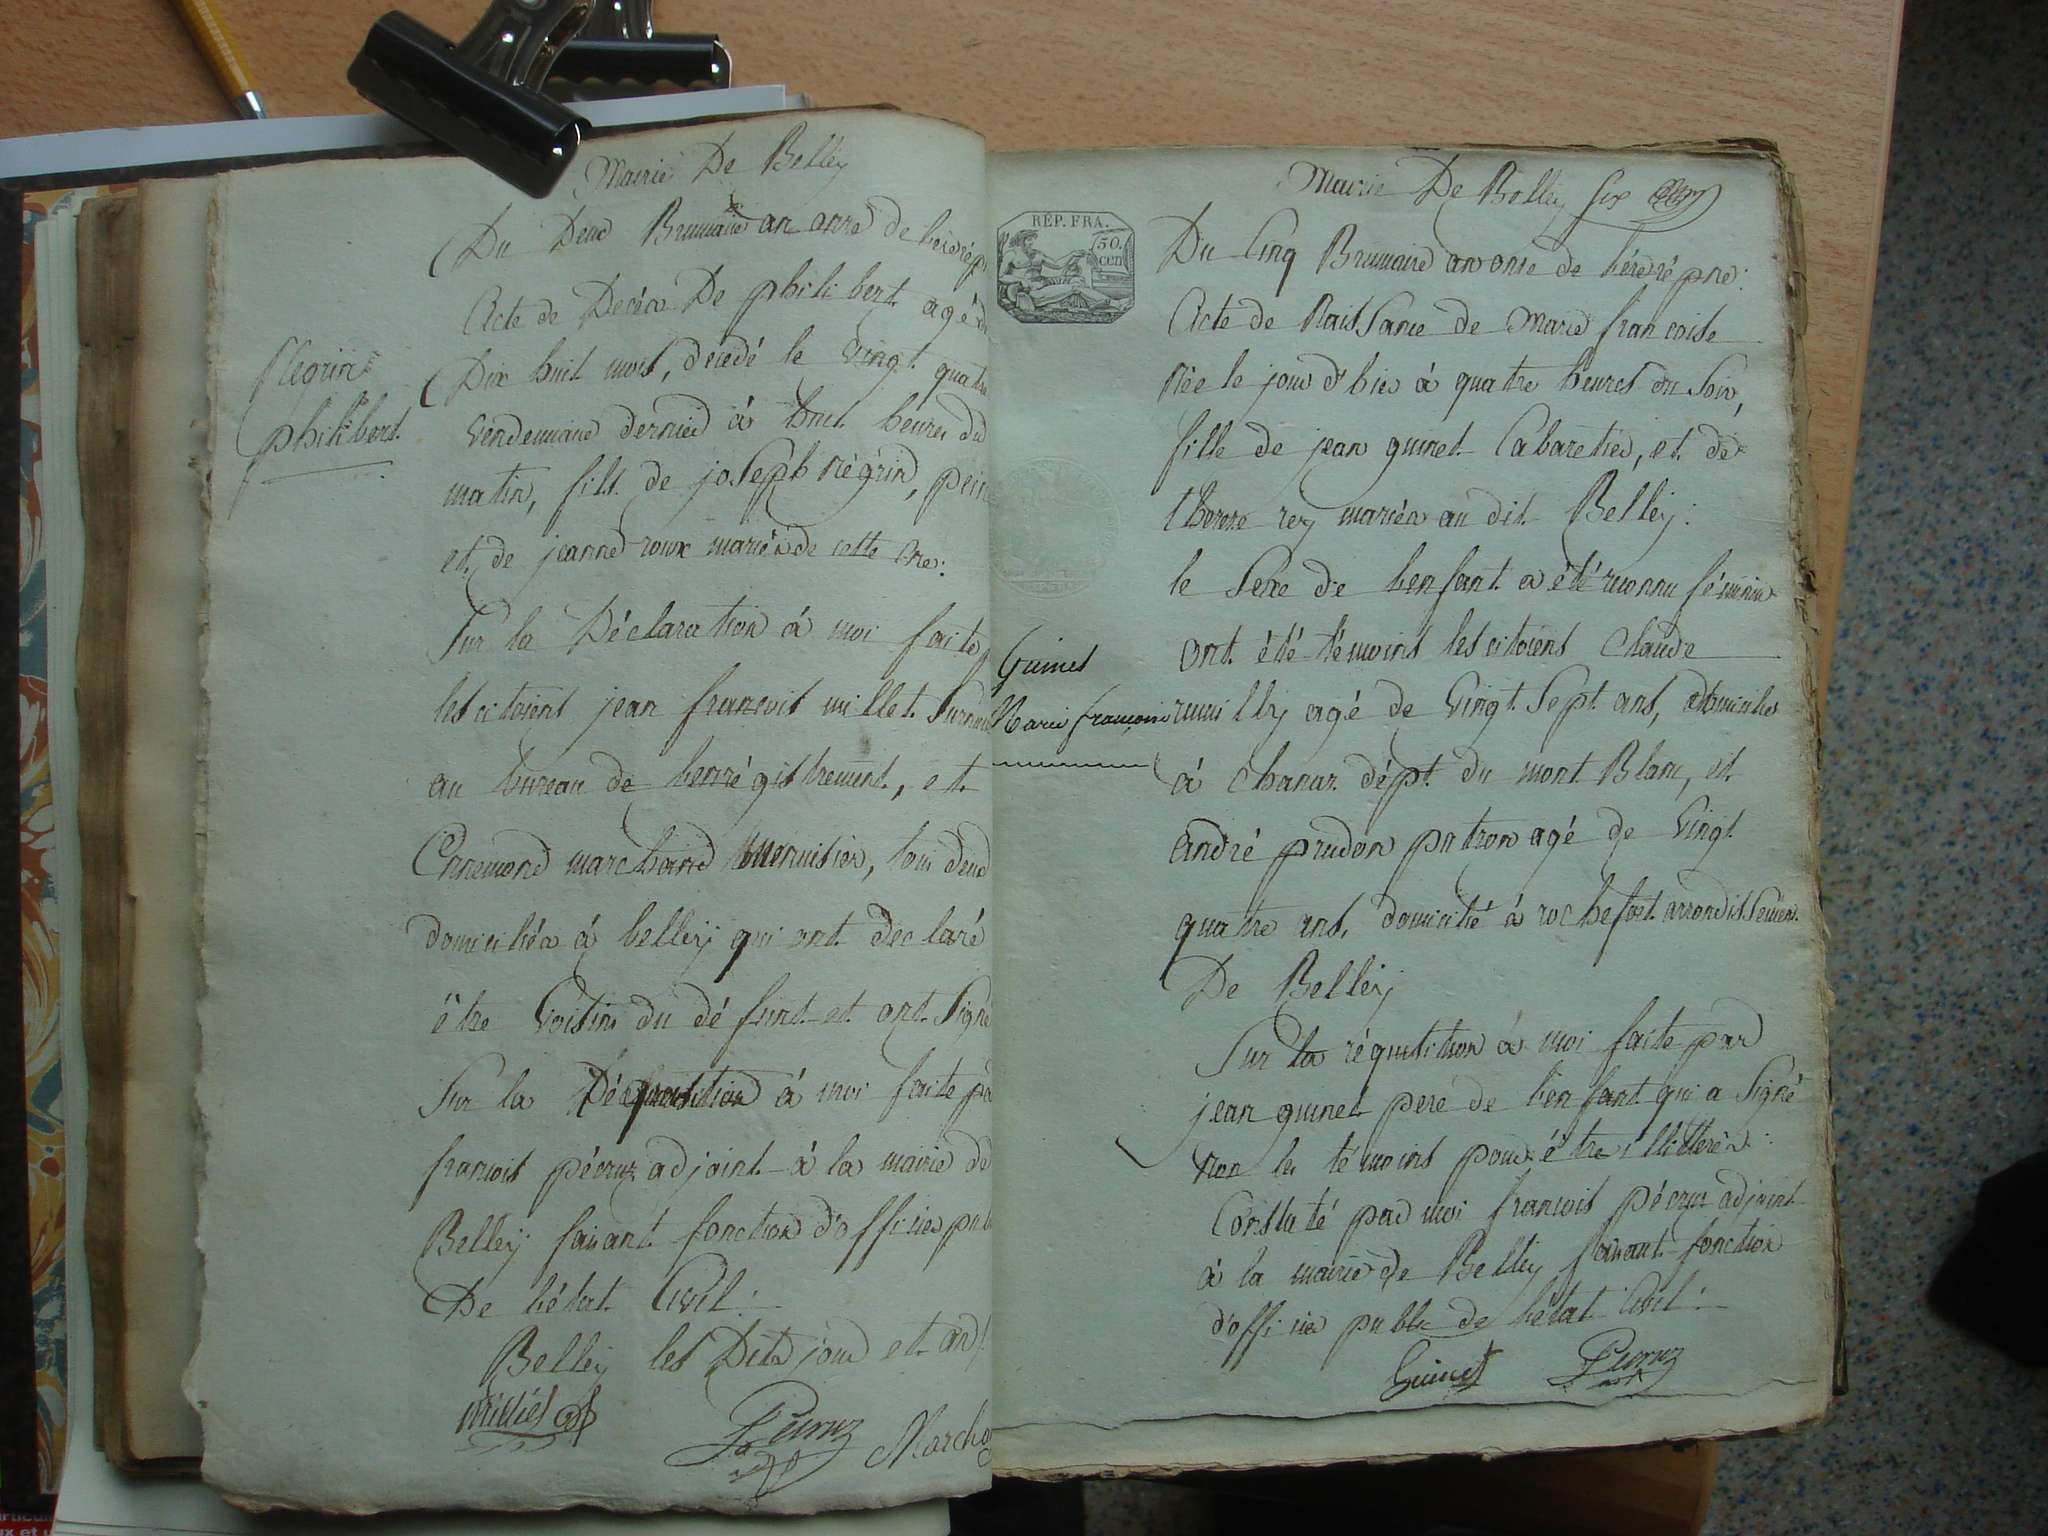 Mairie De Belley
Du Deux Brumaire an onze de l'ère rép
Acte de Décès De philibert agé de
Dix huit mois, décédé le Vingt quatre
Vendemiaire dernier à huit heures du
matin, fils de joseph négrin,
et de jeanne roux mariés de cette cne:
Sur la Déclaration à moi faite p
les citoiens jean francois millet
au bureau de l'enrégistrement, et
Ennemond marchand menuisier, tous deux
domiciliés à belley qui ont déclaré
être Voisins du défunt et ont Signé
Sur la Réquisition à moi faite pa
francois pécruz adjoint à la mairie de
Belley faisant fonction d'officier pub
De l'état Civil:
Belley les Dits jour et an
millet
Pécruz
March
Négrin
philibert
RÉP. FRA.
50.
cen
Mairie De Belley six
Du Cinq Brumaire an onze de l'ère répne:
Acte de Naissance de Marie francoise
Née le jour d'hier à quatre heures du Soir,
fille de jean guinet Cabaretier, et de
therese rey mariés au dit Belley:
le Sexe de l'enfant a été reconnu féminin
ont été témoins les citoiens Claude
rumilly agé de Vingt Sept ans, domicilié
à chanaz dépt du mont Blanc, et
andré prudon patron agé de Vingt
quatre ans, domicilié à rochefort arrondissement
De Belley
Sur la réquisition à moi faite par
jean guinet pere de l'enfant qui a Signé
non les témoins pour être illitterés:
Constaté par moi francois pécruz adjoint
à la mairie de Belley faisant fonction
d'officier public de l'état Civil:
Guinet
Pécruz
Guinet
Marie françoise